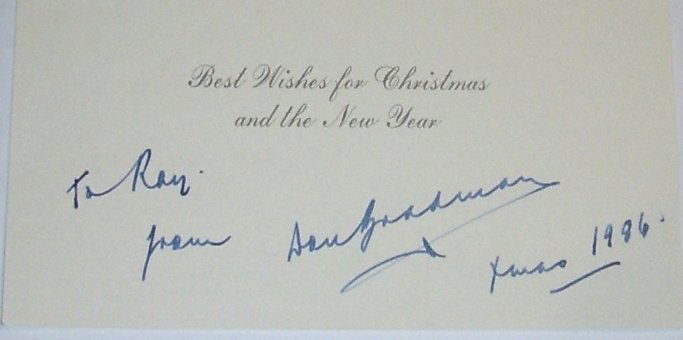 Best Wishes for Christmas
and the New Year
To Ray.
from Don Bradman
Xmas 1986.